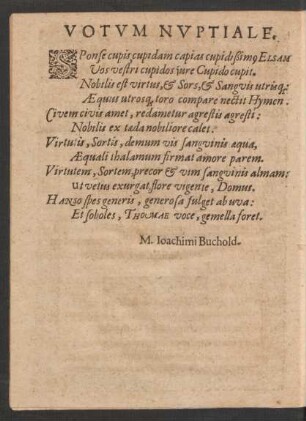 VOTVM NVPTIALE.
SPonse cupis cupidam capias cupidissimq; ELSAM
Vos vestri cupidos iure Cupido cupit.
Nobilis est virtus, & Sors, & Sanguis utriq;:
Æquus utrosq, toro compare nectit Hymen.
Civem civis amet, redametur agrestis agresti:
Nobilis ex tæda nobiliore calet.
Virtutis, Sortis, demum vis sangvinis æqua,
Æquali thalamum firmat amore parem.
Virtutem, Sortem, precor & vim sangvinis almam:
Ut vetus exurgat, flore vigente, Domus.
HANJO spes generis, generosa fulget ab uva:
Et soboles, THOMAE voce, gemella foret.
M. Ioachimi Buchold.